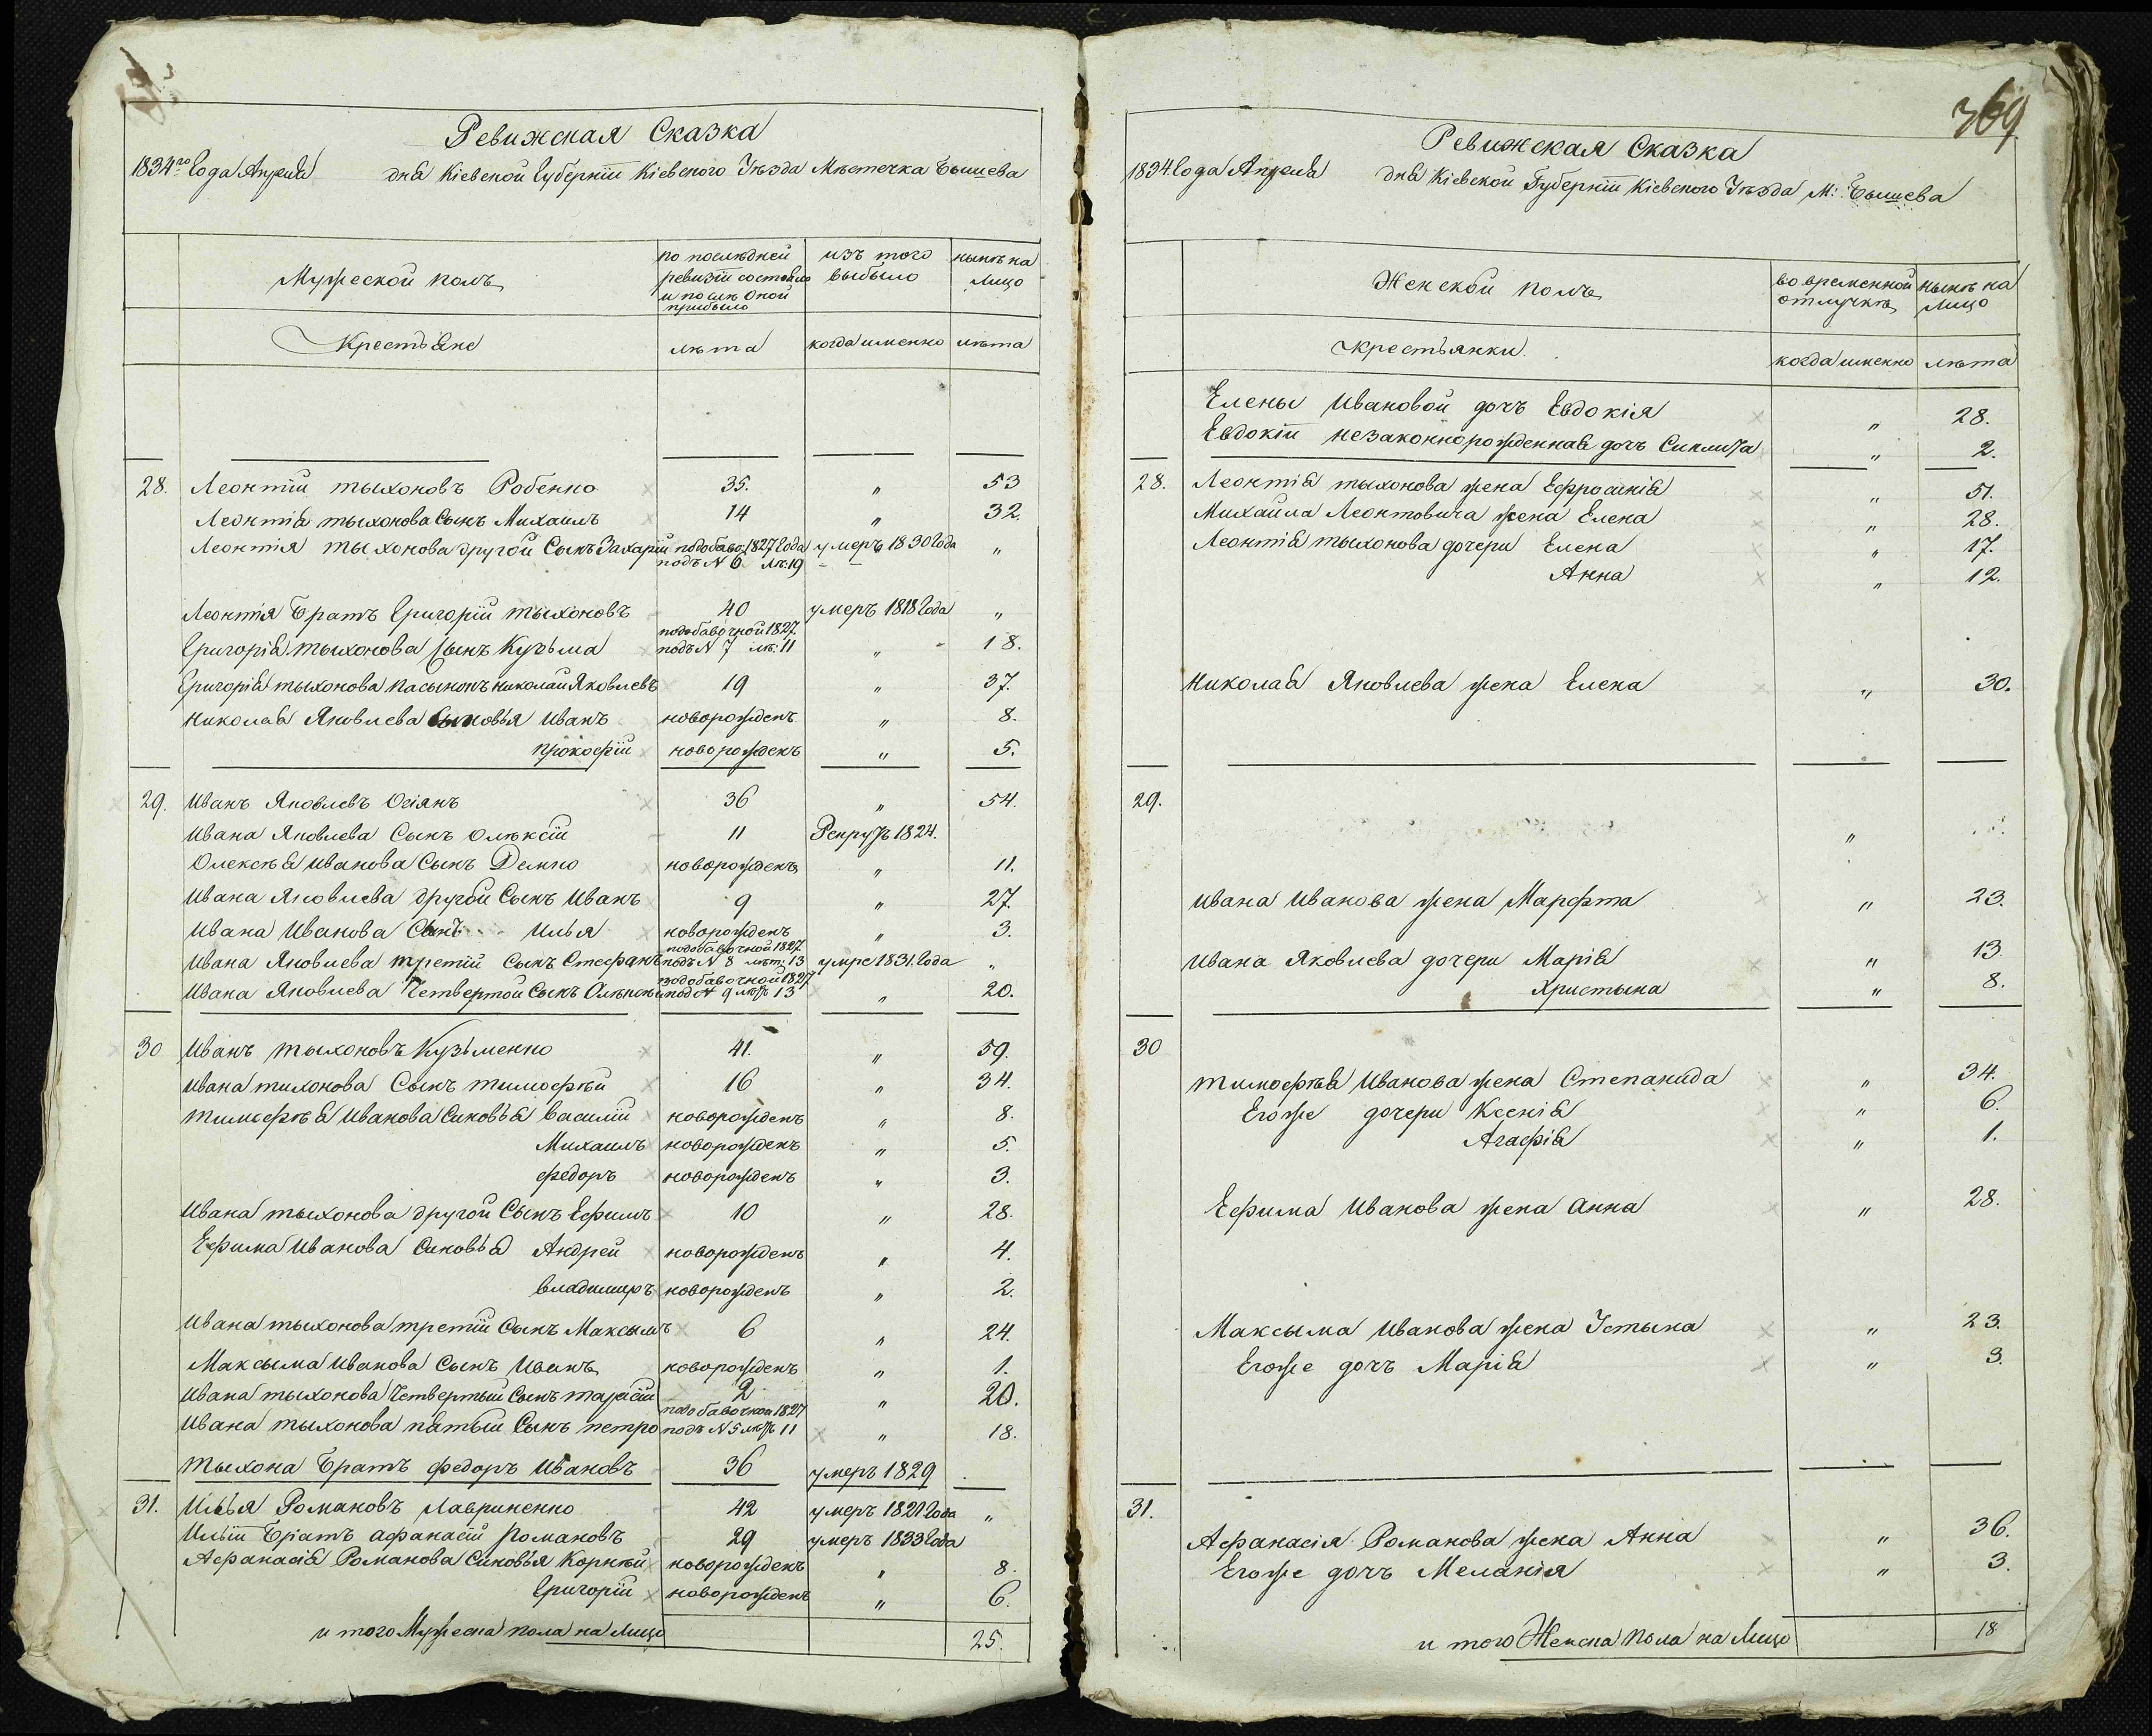 Ревижская Сказка
1834го Года Апреля дня Кіевской Губерніи Кіевского Уѣзда Мѣстечка Бышева
Мужеской полъ
по послѣдней ревизіи состояло и послѣ оной прибыло
изъ того выбыло
нынѣ на лицо
Крестьяне
лѣта
когда именно
лѣта
28. Леонтий тыхоновъ Робенко 35. " 53
Леонтія тыхонова Сынъ Михаилъ 14 " 32.
Леонтія тыхонова другой Сынъ Захарій подобавоч: 1827 Года умеръ 1830 Года "
подъ N 6 лѣ: 19
Леонтія Братъ Григорій тыхоновъ 40 умеръ 1818 Года "
подобавочной 1827
Григорія тыхонова Сынъ Кузьма подъ N 7 лѣ: 11 " 18.
Григорія тыхонова пасынокъ николай Яковлевъ 19 " 37.
николая Яковлева Сыновья Иванъ новорожденъ " 8.
прокофій новорожденъ " 5.
29. Иванъ Яковлевъ Осіянъ 36 " 54.
Ивана Яковлева Сынъ олѣксій 11 Рекрутъ 1824.
Олексѣя Иванова Сынъ Демко новорожденъ " 11.
Ивана Яковлева другой Сынъ Иванъ 9 " 27.
Ивана Иванова Сынъ Илья новорожденъ " 3.
подобавочной 1827
Ивана Яковлева третій Сынъ Стефанъ подъ N 8 лѣт: 13 умре 1831. Года "
подобавочной 1827
Ивана Яковлева Четвертой Сынъ под N 9 лѣтъ 13 " 20.
30 Иванъ тыхоновъ Кузьменко 41. " 59.
Ивана тихонова Сынъ тимофѣй 16 " 34.
тимофѣя Иванова Сиковья Василій новорожденъ " 8.
Михаилъ новорожденъ " 5.
федоръ новорожденъ " 3.
Ивана тыхонова другой Сынъ Ефимъ 10 " 28.
Ефима Иванова Сиковья Андрей новорожденъ " 4.
владимиръ новорожденъ " 2.
Ивана тыхонова третій Сынъ Максымъ 6 " 24.
Максыма Иванова Сынъ Иванъ новорожденъ " 1.
Ивана тыхонова Четвертый Сынъ тарасій 2 " 20.
подобавочной 1827
Ивана тыхонова пятый Сынъ петро подъ N 5 лѣтъ 11 " 18.
тыхона Братъ федоръ Ивановъ 36 умеръ 1829
31. Илья Романовъ Лавриненко 42 умеръ 1821 Года "
Иліи Братъ афанасій Романовъ 29 умеръ 1833 Года
Афанасія Романова Сиковья Корнѣй новорожденъ " 8.
Григорій новорожденъ " 6.
и того Мужеска пола на лицо 25.
369
Ревижская Сказка
1834 Года Апреля дня Кіевской Губерніи Кіевского Уѣзда М: Бышева
Женской полъ
во временной отлучкѣ
нынѣ на лицо
Крестьянки.
когда именно
лѣта
Елены Ивановой дочъ Евдокія " 28.
Евдокіи незаконнорожденная дочъ " 2.
28. Леонтія тыхонова жена Ефросинія " 51.
Михайла Леонтовича жена Елена " 28.
Леонтія тыхонова дочери Елена " 17.
Анна " 12.
николая Яковлева жена Елена " 30.
29.
"
Ивана Иванова жена Марфта " 23.
Ивана Яковлева дочери Марія " 13
Христына " 8.
30
тимофѣя Иванова жена Степанида " 34.
Егоже дочери Ксенія " 6.
Агафія " 1.
Ефима Иванова жена анна " 28.
Максыма Иванова жена Устына " 23.
Егоже дочъ Марія " 3.
31.
Афанасія Романова жена Анна " 36.
Егоже дочъ Меланія " 3.
и того Женска пола на лицо 18